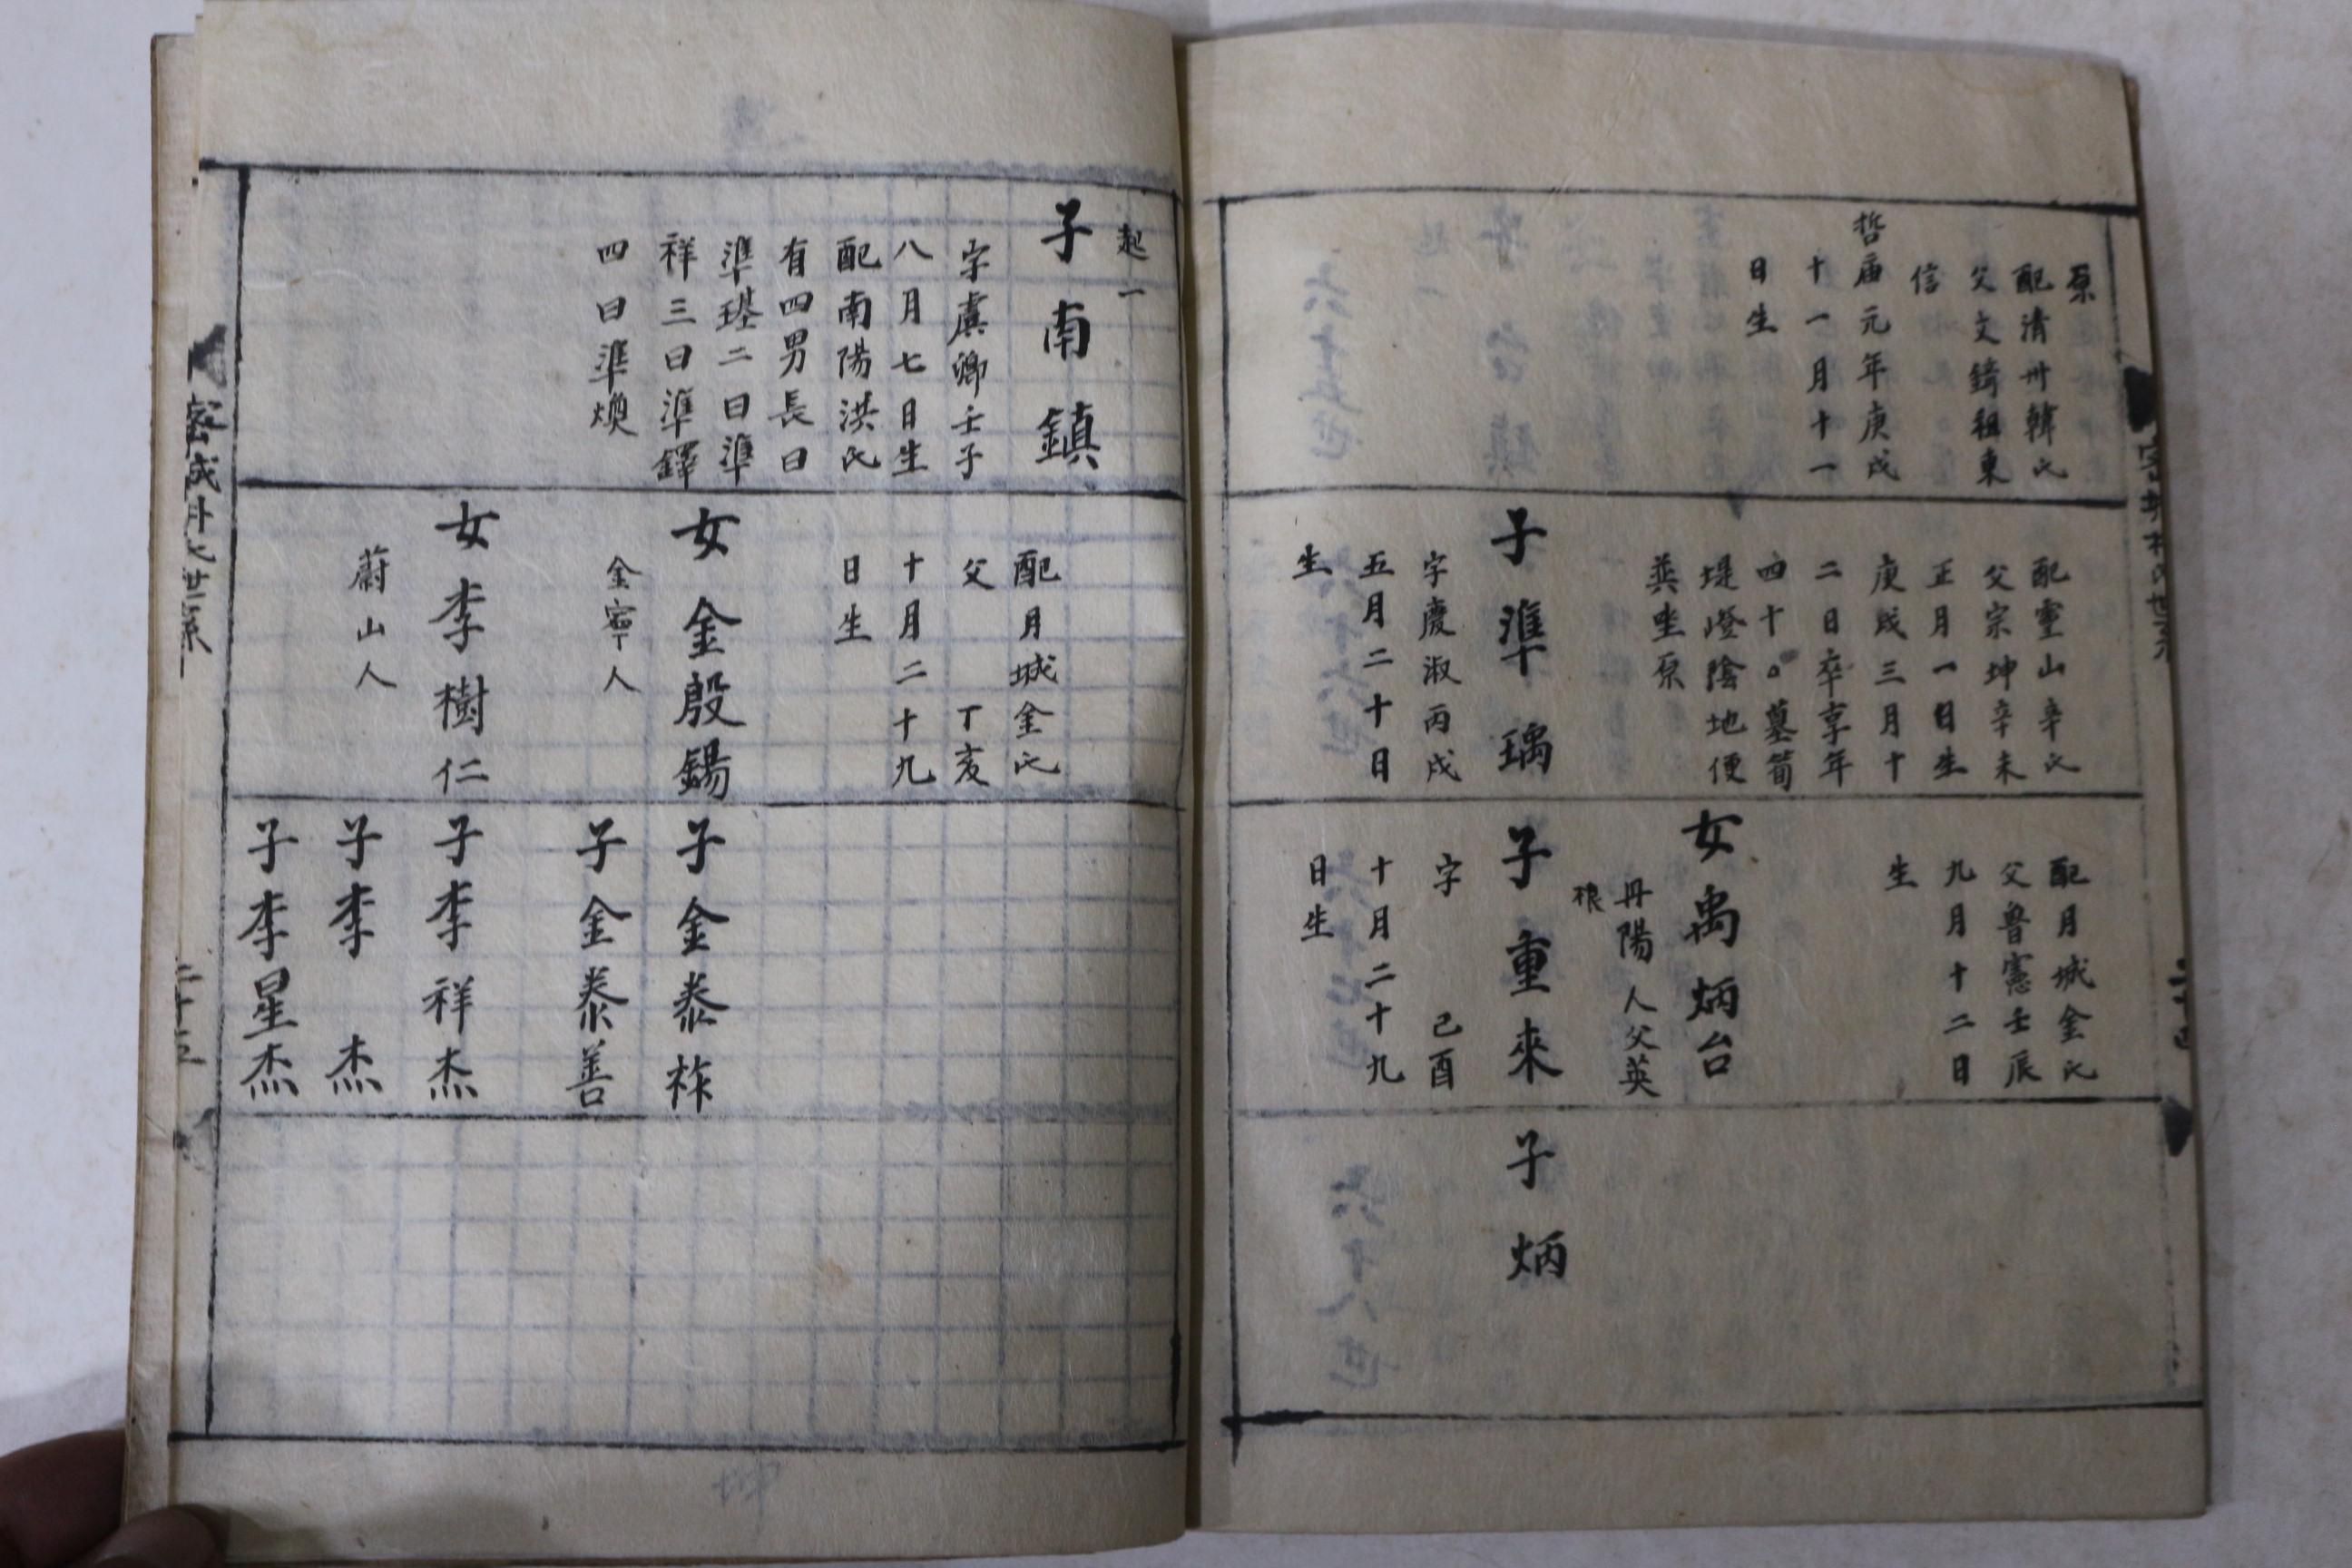 原
配清州韓氏
父文鑄祖東
信
哲庙元年庚戌
十一月十一
日生
配靈山辛氏
父宗坤辛未
正月一日生
庚戌三月十
二日卒享年
四十。墓筍
堤嶝陰地便
巽坐原
子準瑀
字慶淑丙戌
五月二十日
生
配月城金氏
父魯憲壬辰
九月十二日
生
女禹炳台
丹陽人父英
根
子重來
字 己酉
十月二十九
日生
子炳
起一
子南鎮
字虞卿壬子
八月七日生
配南陽洪氏
有四男長曰
準琎二曰準
祥三曰準鐸
四曰準煥
配月城金氏
父 丁亥
十月二十九
日生
女金殷錫
金寧人
女李樹仁
蔚山人
子金泰祚
子金泰善
子李祥杰
子李 杰
子李星杰
密城朴氏世系
二十五